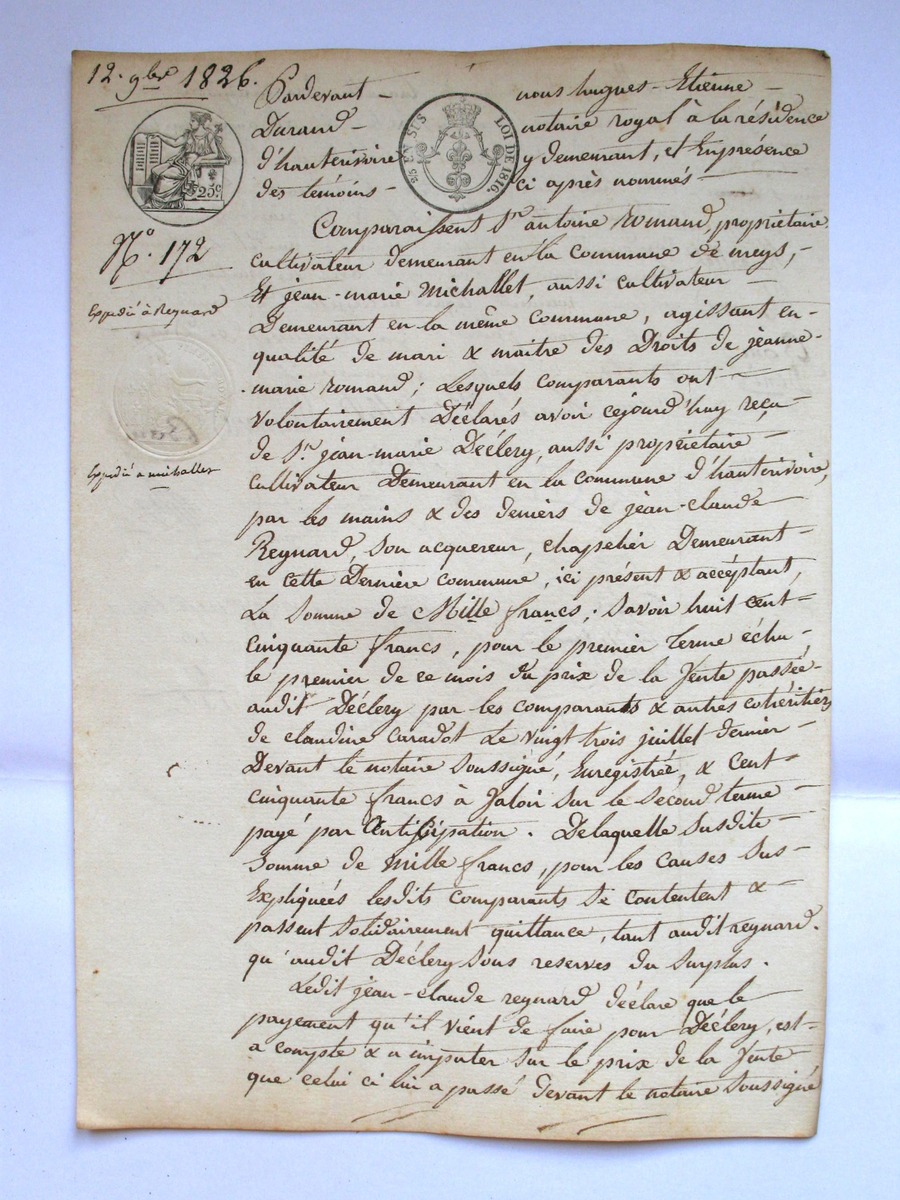 12. 9bre 1826.
Pardevant nous hugues-Etienne
Durand notaire royal à la résidence
d'hauterivoire y demeurant, et Enprésence
des temoins ci après nommés
ET SUS LOI DE 1816.
25c.
N°. 172
Expedié à Reynard
Expedié a michallet
Comparaissent Sr. antoine Romand, propriétaire
cultivateur demeurant en la commune de meys,
Et jean-marie Michallet, aussi cultivateur
Demeurant en la même commune, agissant en
qualité de mari & maitre des Droits de jeanne-
marie romand; Lesquels comparants ont
volontairement Déclarés avoir cejourd'huy reçu
de Sr. jean-marie Décléry, aussi propriétaire
cultivateur Demeurant en la commune d'hauterivoire,
par les mains & des deniers de jean-claude
Reynard, son acquereur, chapelier Demeurant
en cette Dernière commune, ici présent & acceptant,
La somme de Mille francs; savoir huit cent
cinquante francs, pour le premier terme échu
le premier de ce mois du prix de la Vente passée
audit Décléry par les comparants & autres cohéritiers
de claudine caradot Le vingt trois juillet dernier
Devant le notaire soussigné, Enregistrée, & Cent
cinquante francs à Valoir sur le second terme
payé par anticipation. Delaquelle susdite
somme de Mille francs, pour les causes sus-
Expliquées lesdits comparants se contentent &
passent solidairement quittance, tant audit reynard.
qu'audit Décléry sous reserves du surplus.
Ledit jean-claude reynard déclare que le
payement qu'il vient de faire pour Décléry, est
a compte & a imputer sur le prix de la Vente
que celui ci lui a passé devant le notaire soussigné